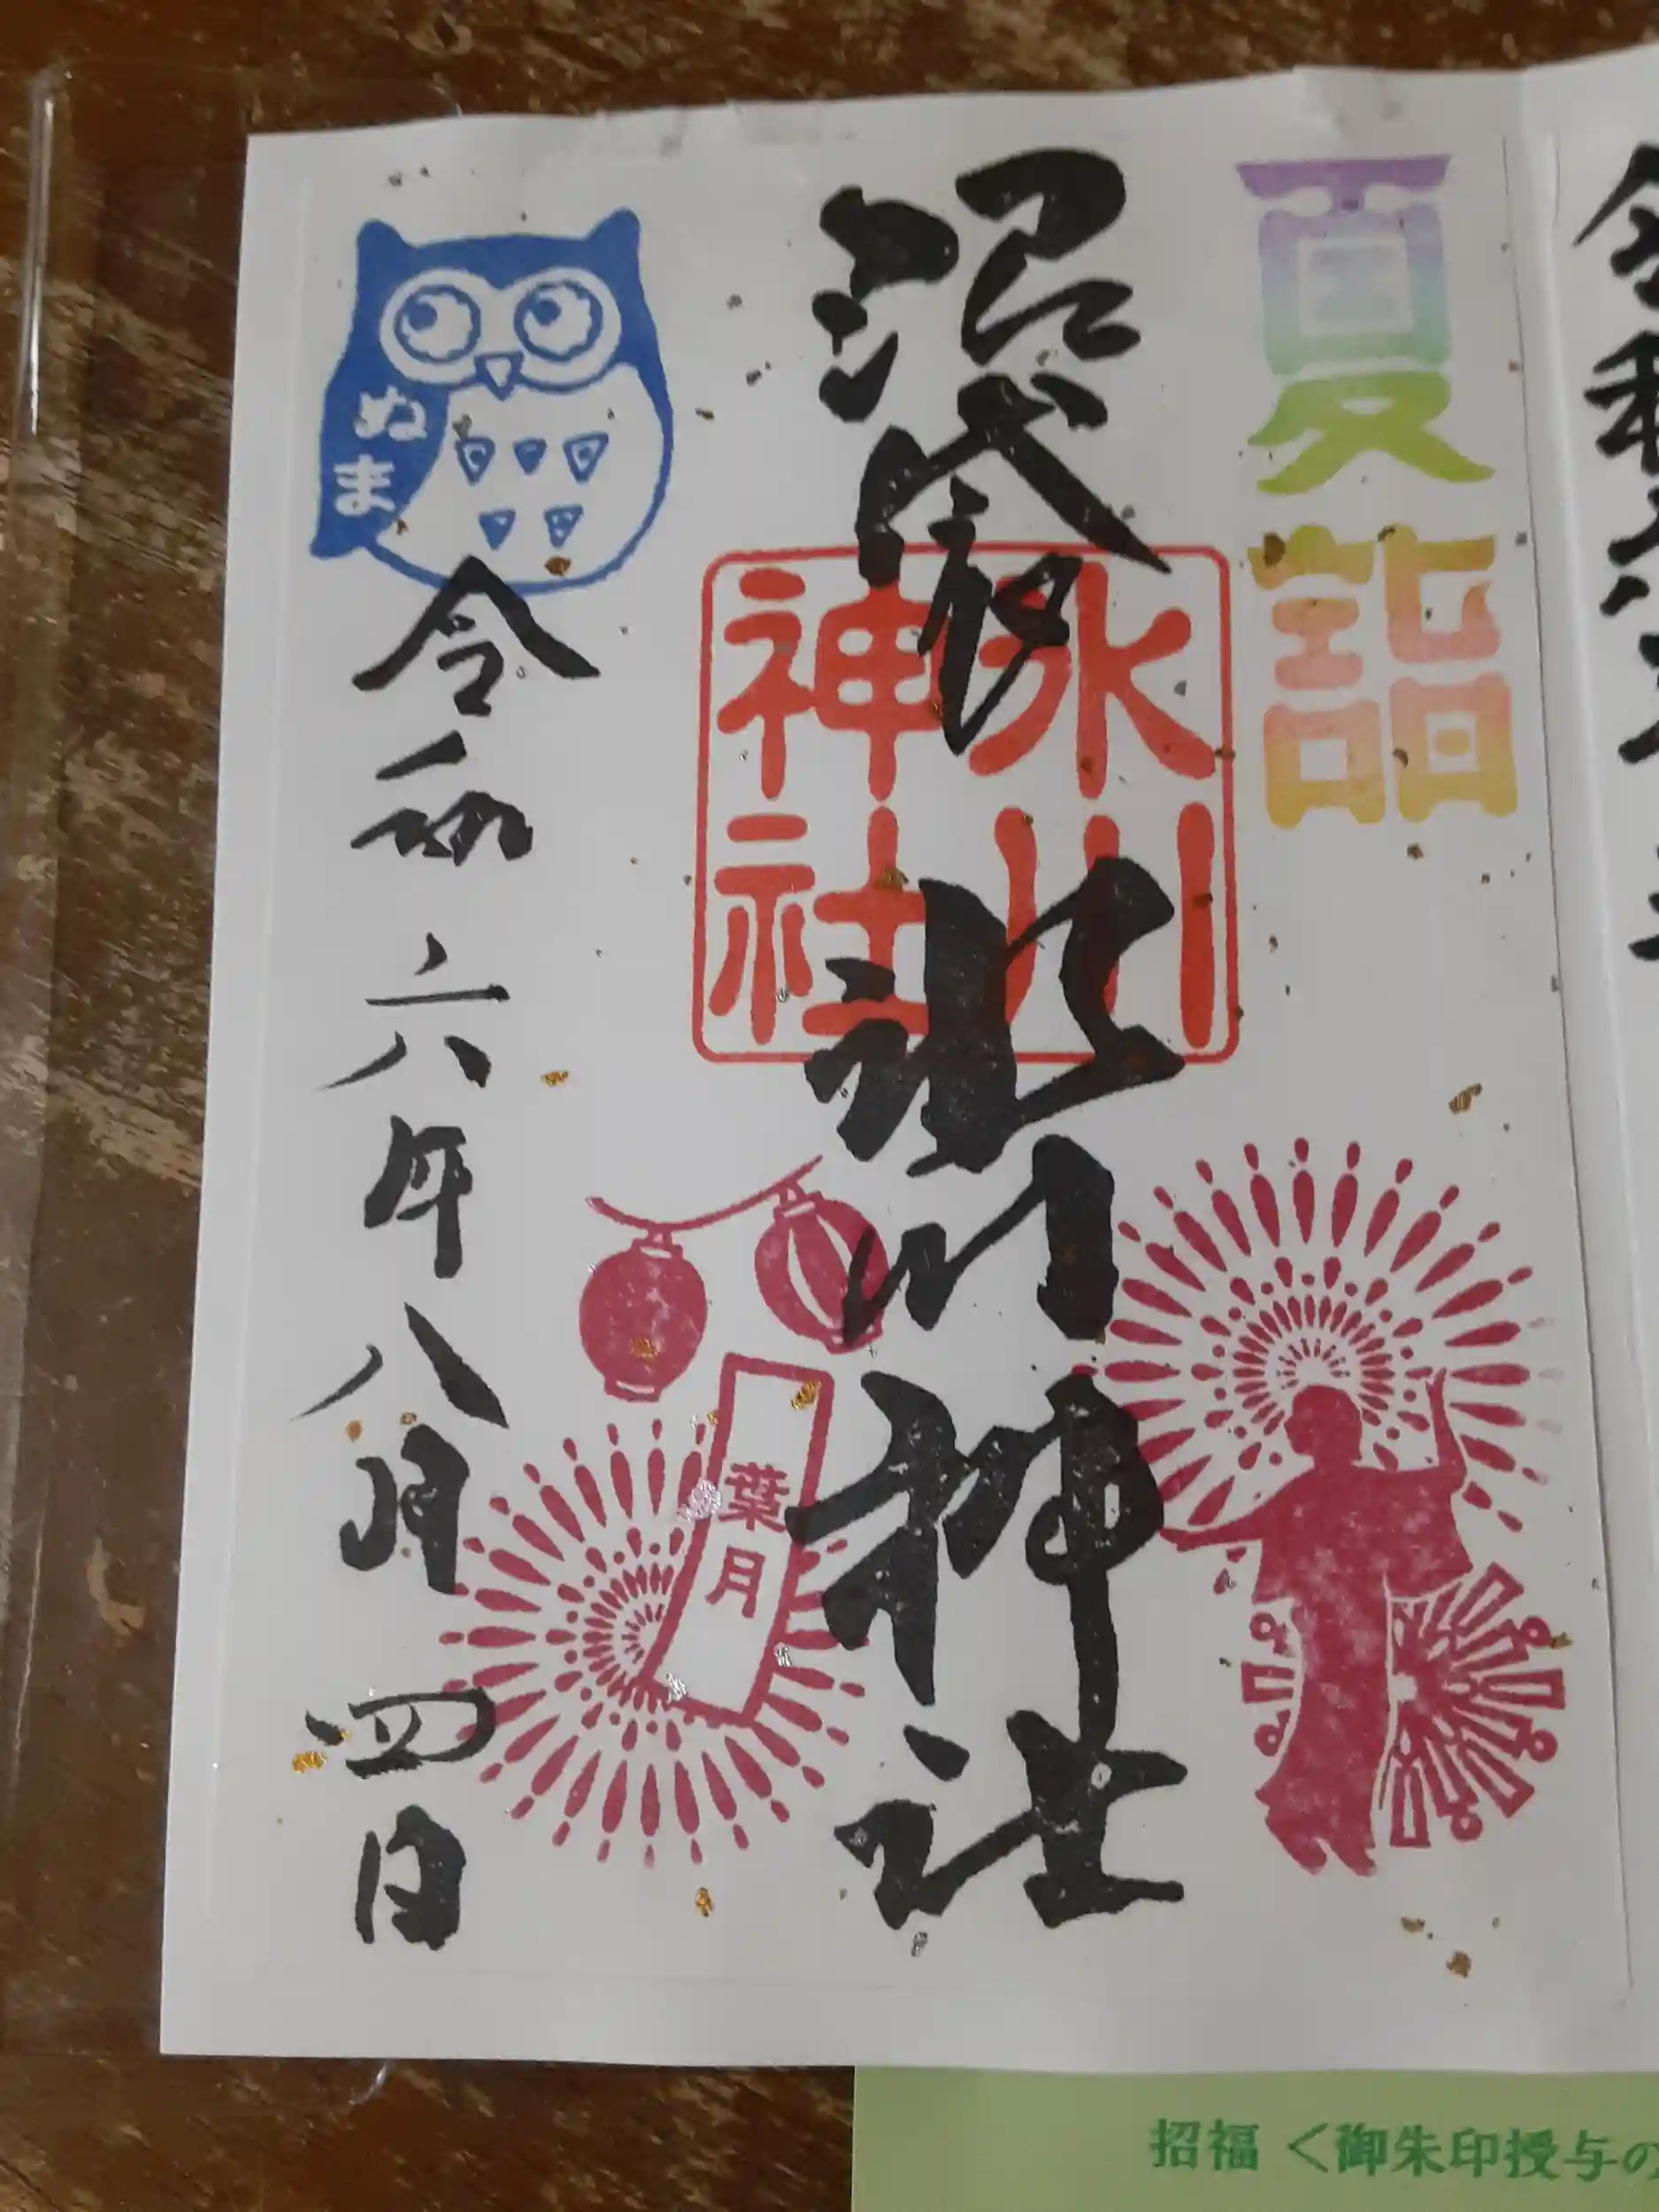 夏詣
沼袋氷川神社
氷川
神社
葉月
ぬま
令和六年八月四日
招福 <御朱印授与の